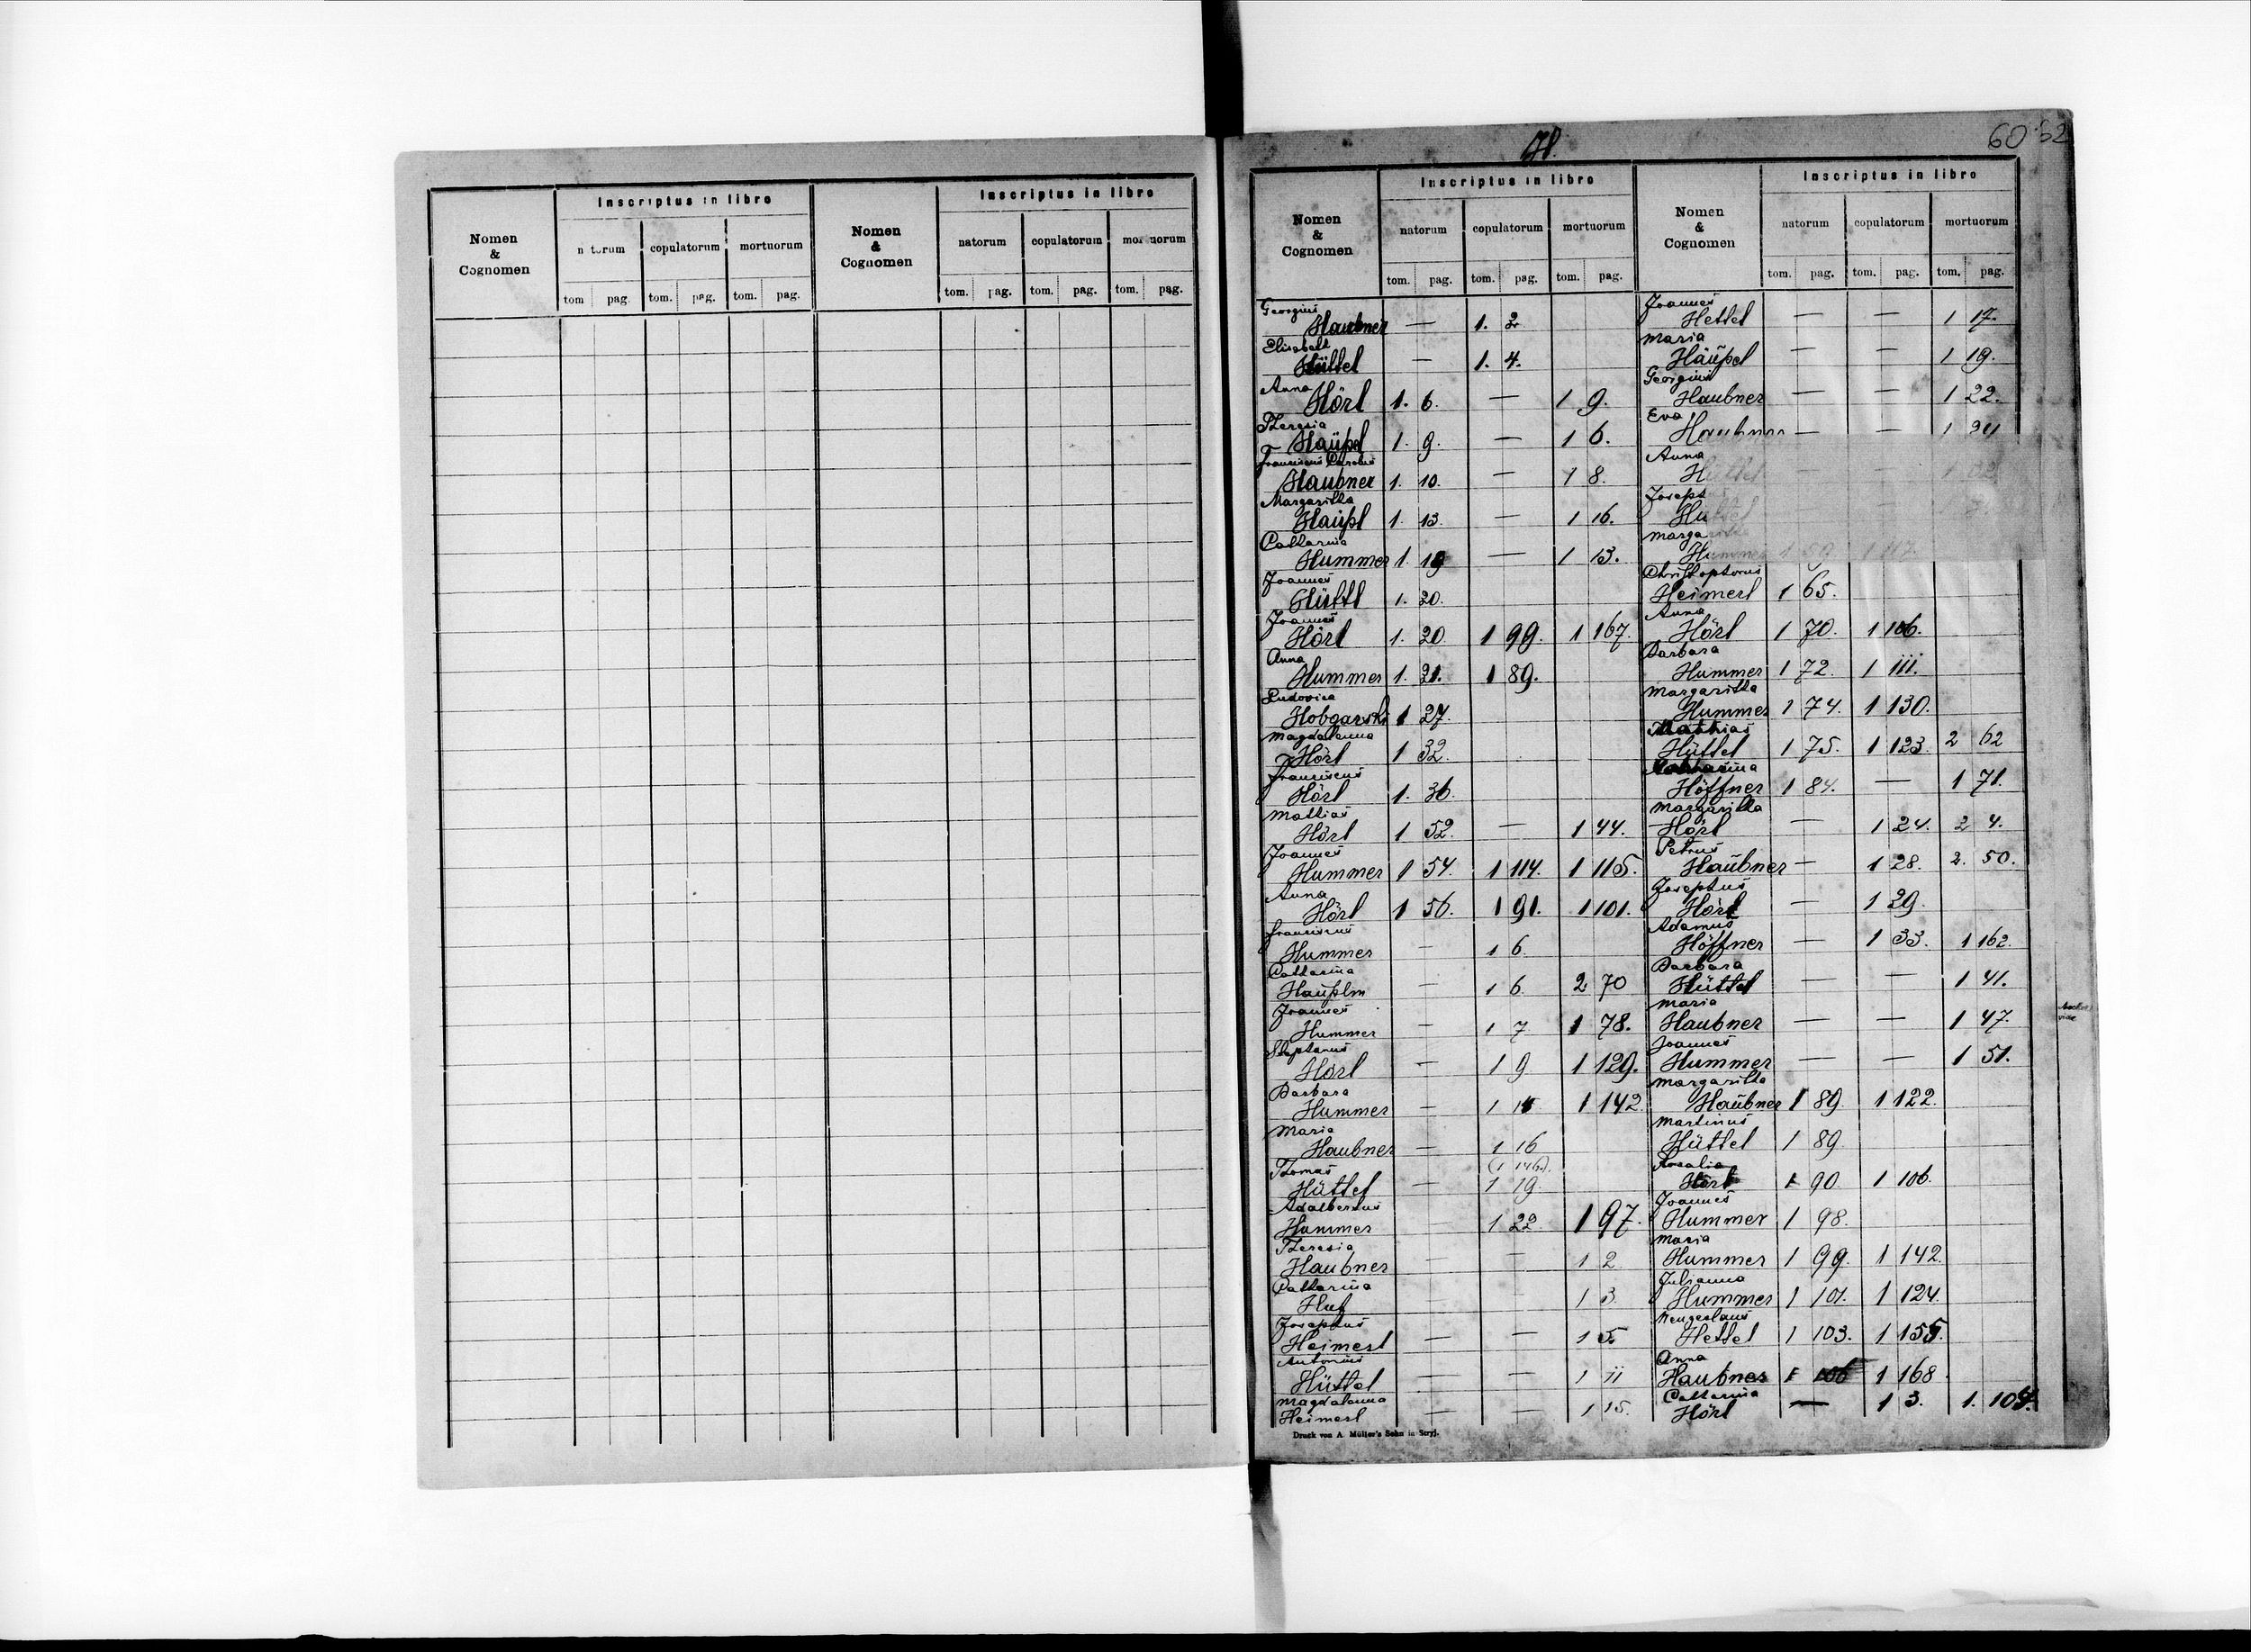 Nomen
&
Cognomen
Inscriptus in libro
copulatorum
mortuorum
tom
pag.
tom.
pag.
tom.
pag.
Nomen
&
Cognomen
Inscriptus in libro
natorum
copulatorum
tom.
pag.
tom.
pag.
tom.
pag.
H.
60
52
Nomen
&
Cognomen
Inscriptus in libro
natorum
copulatorum
mortuorum
tom.
pag.
tom.
pag.
tom.
pag.
Nomen
&
Cognomen
Inscriptus in libro
natorum
copulatorum
mortuorum
tom.
pag.
tom.
pag.
tom.
pag.
Georgius
Haubner — 1. 2.
Elisabeth
Hüttel — 1. 4.
Anna
Hörl 1. 6. — 1 9.
Theresia
Häupel 1. 9. — 1 6.
Franciscus Carolus
Haubner 1. 10. — 1 8.
Margaritha
Haüpl 1. 13. — 1 16.
Catharina
Hummer 1. 19 — 1 13.
Joannes
Hüttl 1. 20.
Joannes
Hörl 1. 20. 1 99. 1 167.
Anna
Hummer 1. 21. 1 89.
Ludovica
1 27.
Magdalenna
Hörl 1 32.
Franciscus
Hörl 1. 36.
Mathias
Hörl 1 52. — 1 44.
Joannes
Hummer 1 54. 1 114. 1 115.
Anna
Hörl 1 56. 1 91. 1 101.
Franciscus
Hummer — 1 6
Catharina
— 1 6 2 70
Joannes
Hummer — 1 7 1 78.
Stephanus
Hörl — 1 9 1 129.
Barbara
Hummer — 1 1 142.
Maria
Haubner — 1 16
(1 146.)
Thomas
Hüttel — 1 19
Adalbertus
Hummer 1 22. 1 97.
Theresia
Haubner — 1 2
Catharina
Huf 1 3
Josephus
Heimerl — — 1 5.
Antonius
Hüttel — — 1 11
Magdalenna
Heimerl — — 1 15.
Joannes
Hettel — — 1 17.
Maria
Häupel — — 1 19.
Georgius
Haubner — — 1 22.
Eva
Haubner — — 1
Anna
Hüttel
Joseph
Hüttel
Margaritha
Hummer 1 59. 1 117.
Christophorus
Heimerl 1 65.
Anna
Hörl 1 70. 1 106.
Barbara
Hummer 1 72. 1 111.
Margaritha
Hummer 1 74. 1 130.
Mathias
Hüttel 1 75. 1 123. 2 62
Catharina
Höffner 1 84. — 1 71.
Margaritha
Hörl — 1 24. 2 4.
Petrus
Haubner — 1 28. 2. 50.
Josephus
Hörl — 1 29.
Adamus
Höffner — 1 33. 1 162.
Barbara
Hüttel — — 1 41.
Maria
Haubner — — 1 47.
Joannes
Hummer — — 1 51.
Margaritha
Haubner 1 89. 1 122.
Martinus
Hüttel 1 89
Rosalia
Hörl 1 90 1 106.
Joannes
Hummer 1 98.
Maria
Hummer 1 99. 1 142.
Julianna
Hummer 1 101. 1 124.
Wenzeslaus
Hettel 1 103. 1 155.
Anna
Haubner 1 106 1 168.
Catharina
Hörl — 1 3. 1. 104.
Druck von A. Müller's Sohn in Stryj.